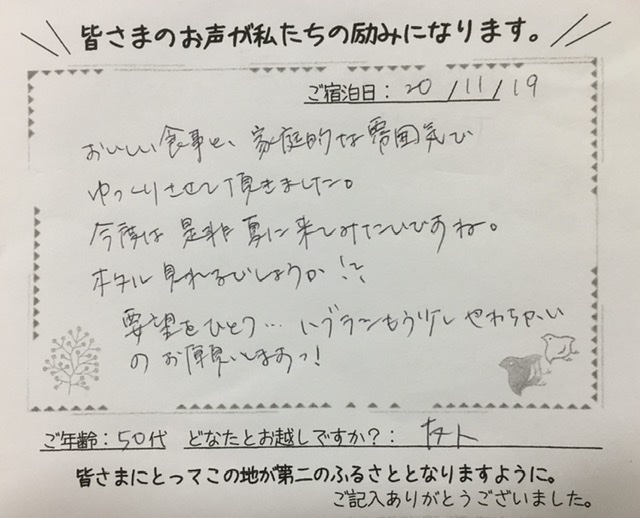 皆さまのお声が私たちの励みになります。
ご宿泊日: 20/11/19
おいしい食事と、家庭的な雰囲気で
ゆっくりさせて頂きました。
今度は是非夏に来てみたいですね。
ホタル見れるでしょうか!?
要望をひとつ… ハブラシもう少しやわらかい
のお願いしますっ!
ご年齢: 50代 どなたとお越しですか?:
皆さまにとってこの地が第二のふるさととなりますように。
ご記入ありがとうございました。